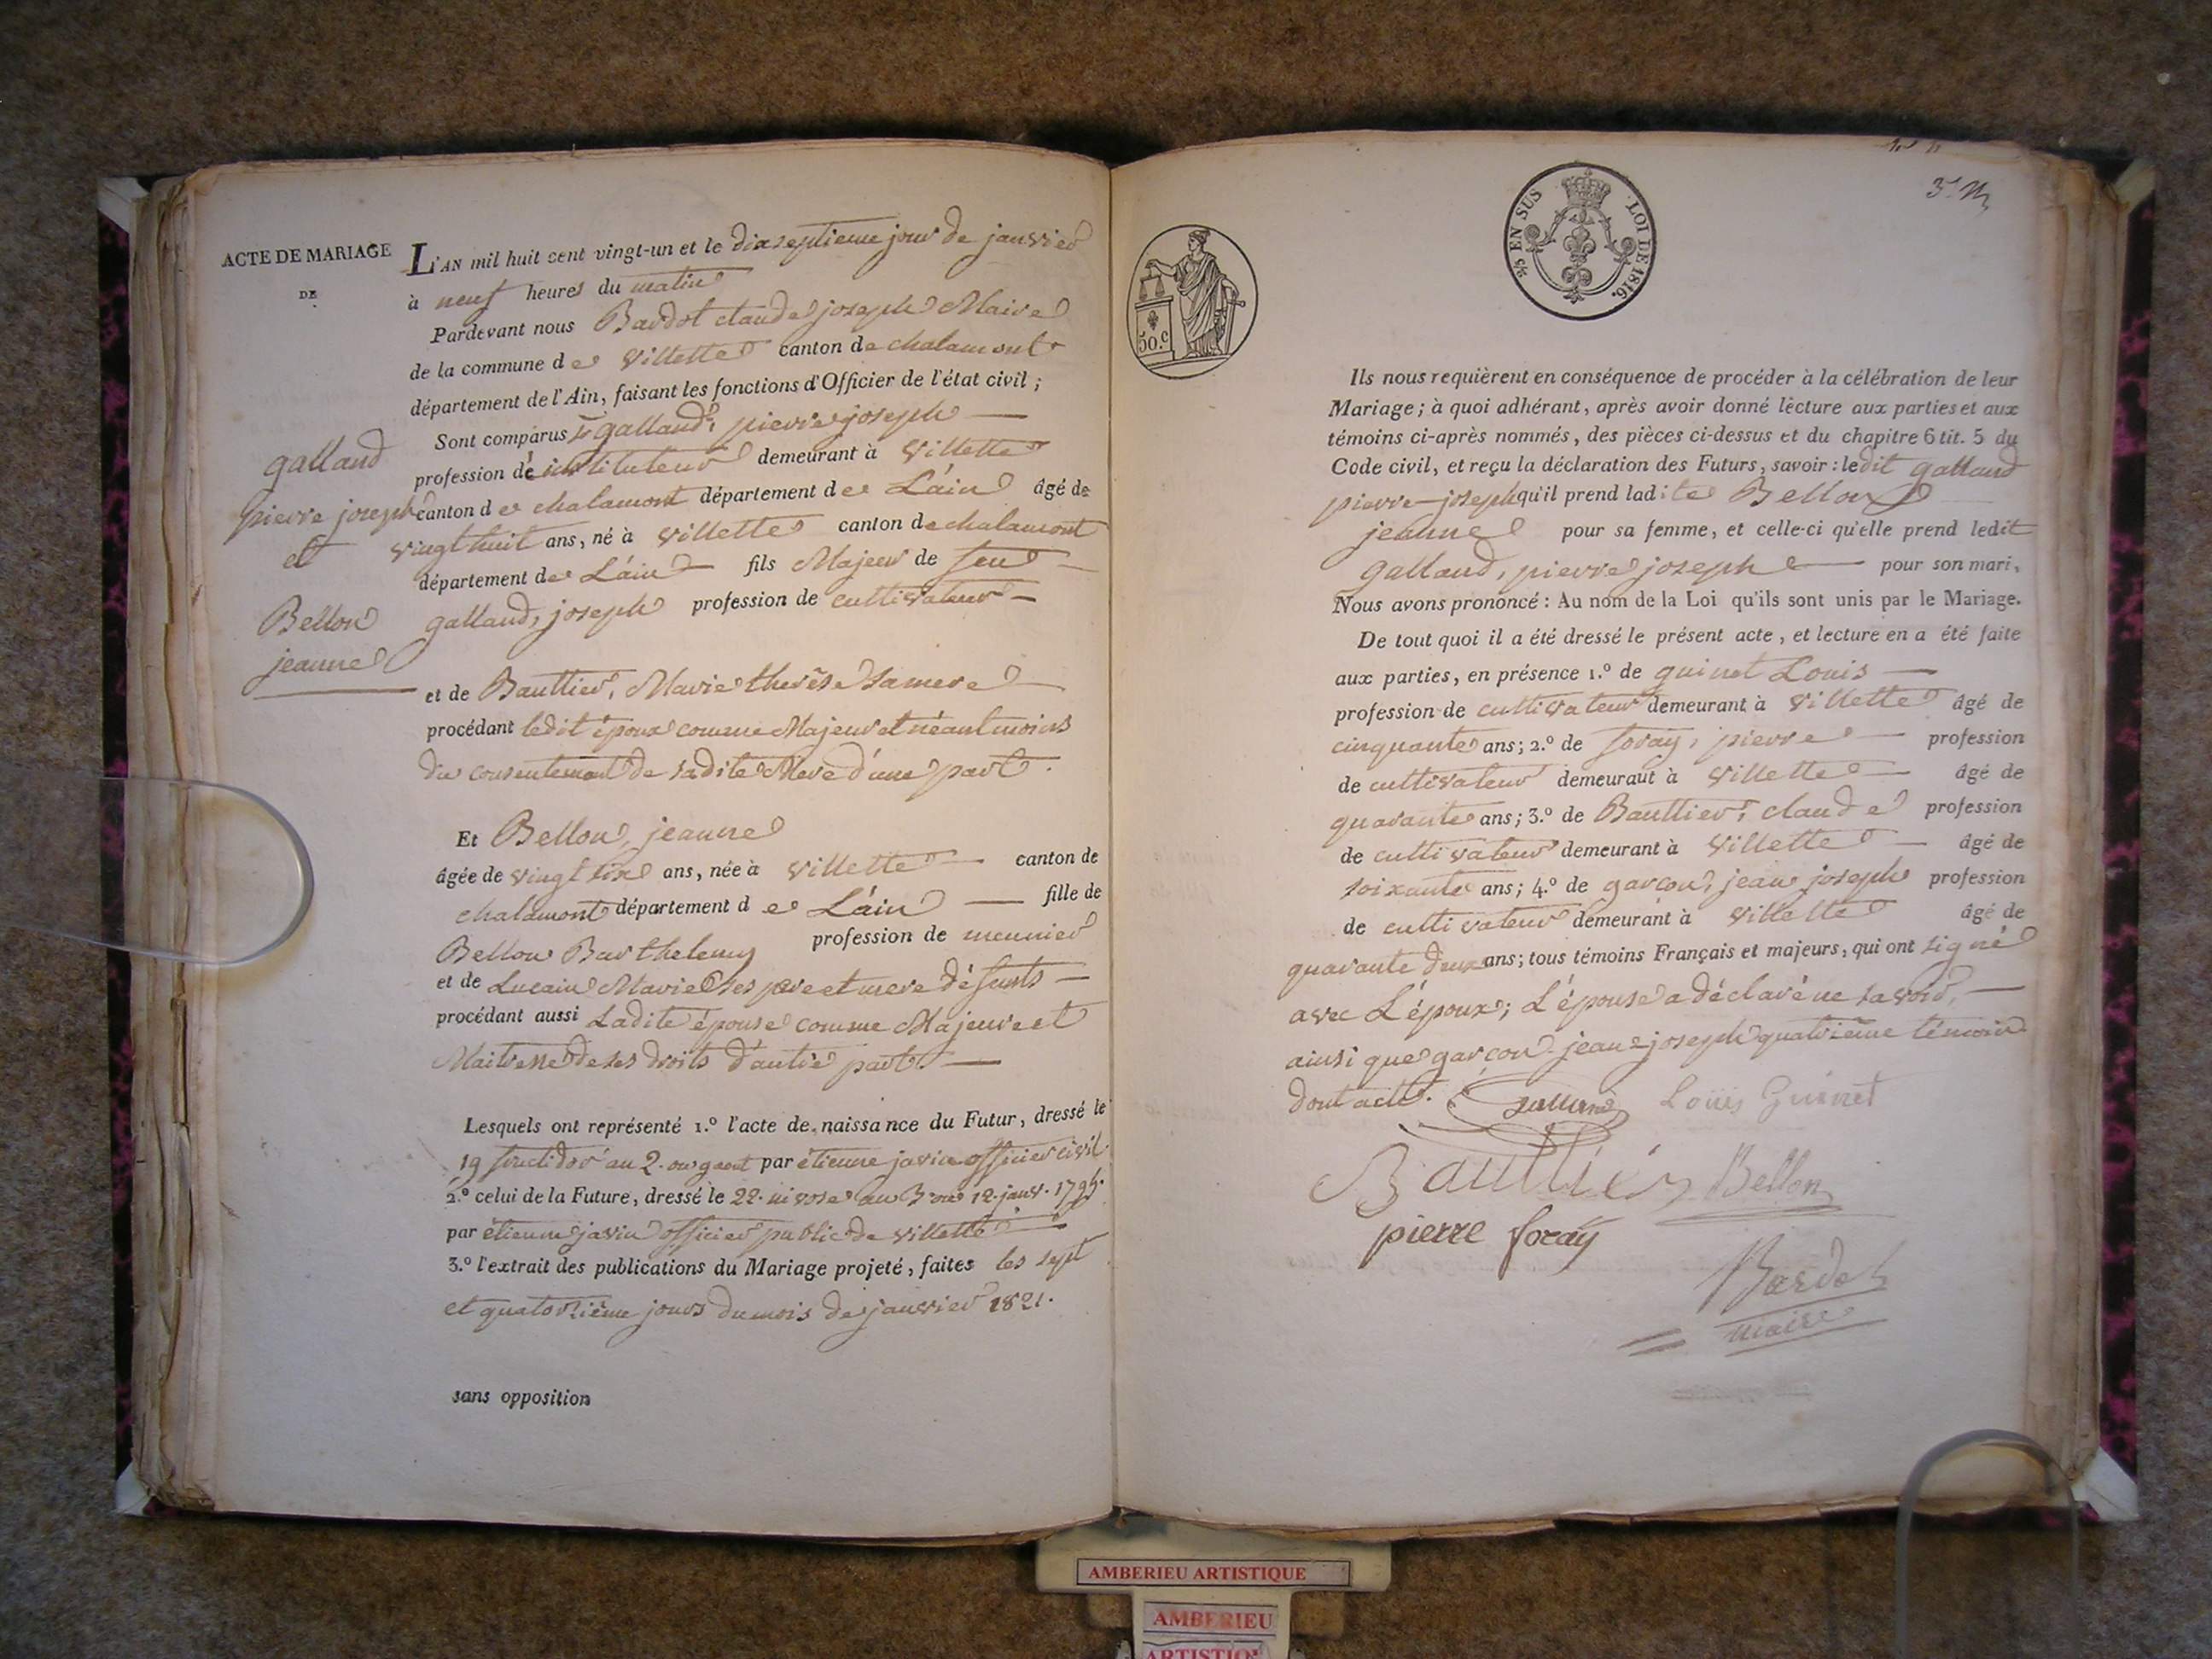 ACTE DE MARIAGE
DE
galland
pierre joseph
et
Bellon
jeanne
L'AN mil huit cent vingt-un et le dixseptieme jour de janvier
à neuf heures du matin
Pardevant nous Bardot claude joseph Maire
de la commune de villette canton de chalamont
département de l'Ain, faisant les fonctions d'Officier de l'état civil;
Sont comparus galland, pierre joseph
profession d'instituteur demeurant à villette
canton de chalamont département de L'ain âgé de
vingt huit ans, né à villette canton de chalamont
département de L'ain fils Majeur de feu
galland, joseph profession de cultivateur
et de Bauttier, Marie therèse sa mere
procédant ledit époux comme Majeur et néantmoins
du consentement de sadite Mere d'une part.
Et Bellon, jeanne
âgée de vingt six ans, née à villette canton de
chalamont département de L'ain fille de
Bellon Barthelemy profession de meunier
et de Lucain Marie ses pere et mere défunts
procédant aussi Ladite épouse comme Majeure et
Maitresse de ses droits d'autre part
Lesquels ont représenté 1.º l'acte de naissance du Futur, dressé le
19 fructidor an 2. par étienne javin officier civil
2.º celui de la Future, dressé le 22. nivose an 3 ou 12. janv. 1795.
par étienne javin officier public de villette
3.º l'extrait des publications du Mariage projeté, faites les sept
et quatorzième jours du mois de janvier 1821.
sans opposition
3. M
50.c
⅖ EN SUS LOI DE 1816.
Ils nous requièrent en conséquence de procéder à la célébration de leur
Mariage; à quoi adhérant, après avoir donné lecture aux parties et aux
témoins ci-après nommés, des pièces ci-dessus et du chapitre 6 tit. 5 du
Code civil, et reçu la déclaration des Futurs, savoir: ledit galland
pierre-joseph qu'il prend ladite Bellon
jeanne pour sa femme, et celle-ci qu'elle prend ledit
galland, pierre joseph pour son mari,
Nous avons prononcé: Au nom de la Loi qu'ils sont unis par le Mariage.
De tout quoi il a été dressé le présent acte, et lecture en a été faite
aux parties, en présence 1.º de guinet Louis
profession de cultivateur demeurant à villette âgé de
cinquante ans; 2.º de foray, pierre profession
de cultivateur demeurant à villette âgé de
quarante ans; 3.º de Bauttier, claude profession
de cultivateur demeurant à villette âgé de
soixante ans; 4.º de garçon, jean joseph profession
de cultivateur demeurant à villette âgé de
quarante deux ans; tous témoins Français et majeurs, qui ont signé
avec L'époux; L'épouse a déclaré ne savoir,
ainsi que garçon jean-joseph quatrième témoin
dont acte. galland Louis Guinet
Bauttier Bellon
pierre foray
Bardot
maire
AMBERIEU ARTISTIQUE
AMBERIEU
ARTISTIQUE